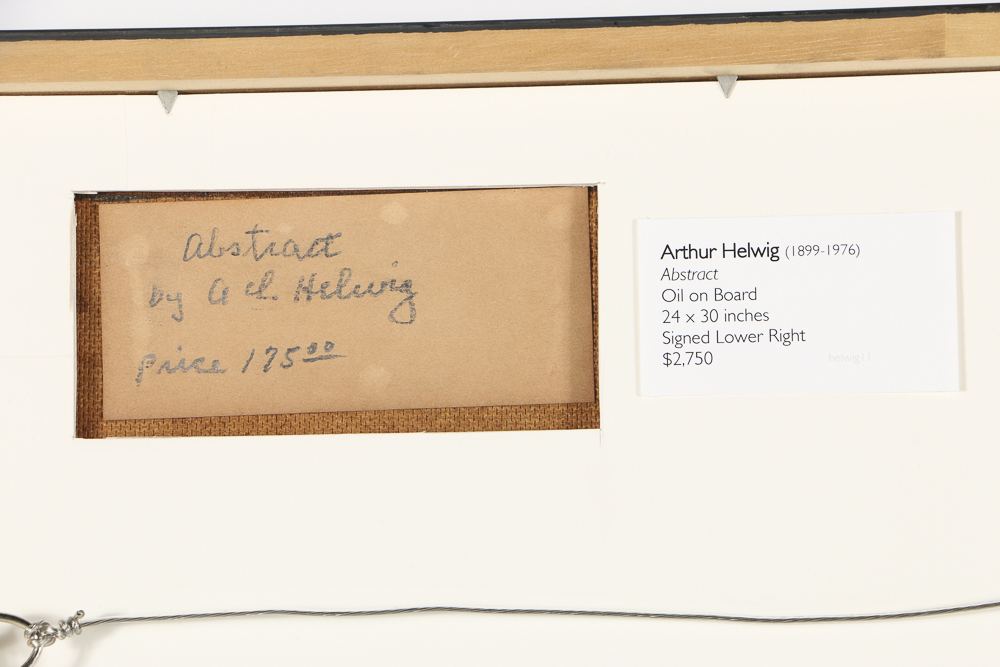 Abstract
by A H. Helwig
price 175.00
Arthur Helwig (1899-1976)
Abstract
Oil on Board
24 x 30 inches
Signed Lower Right
$2,750
helwig11